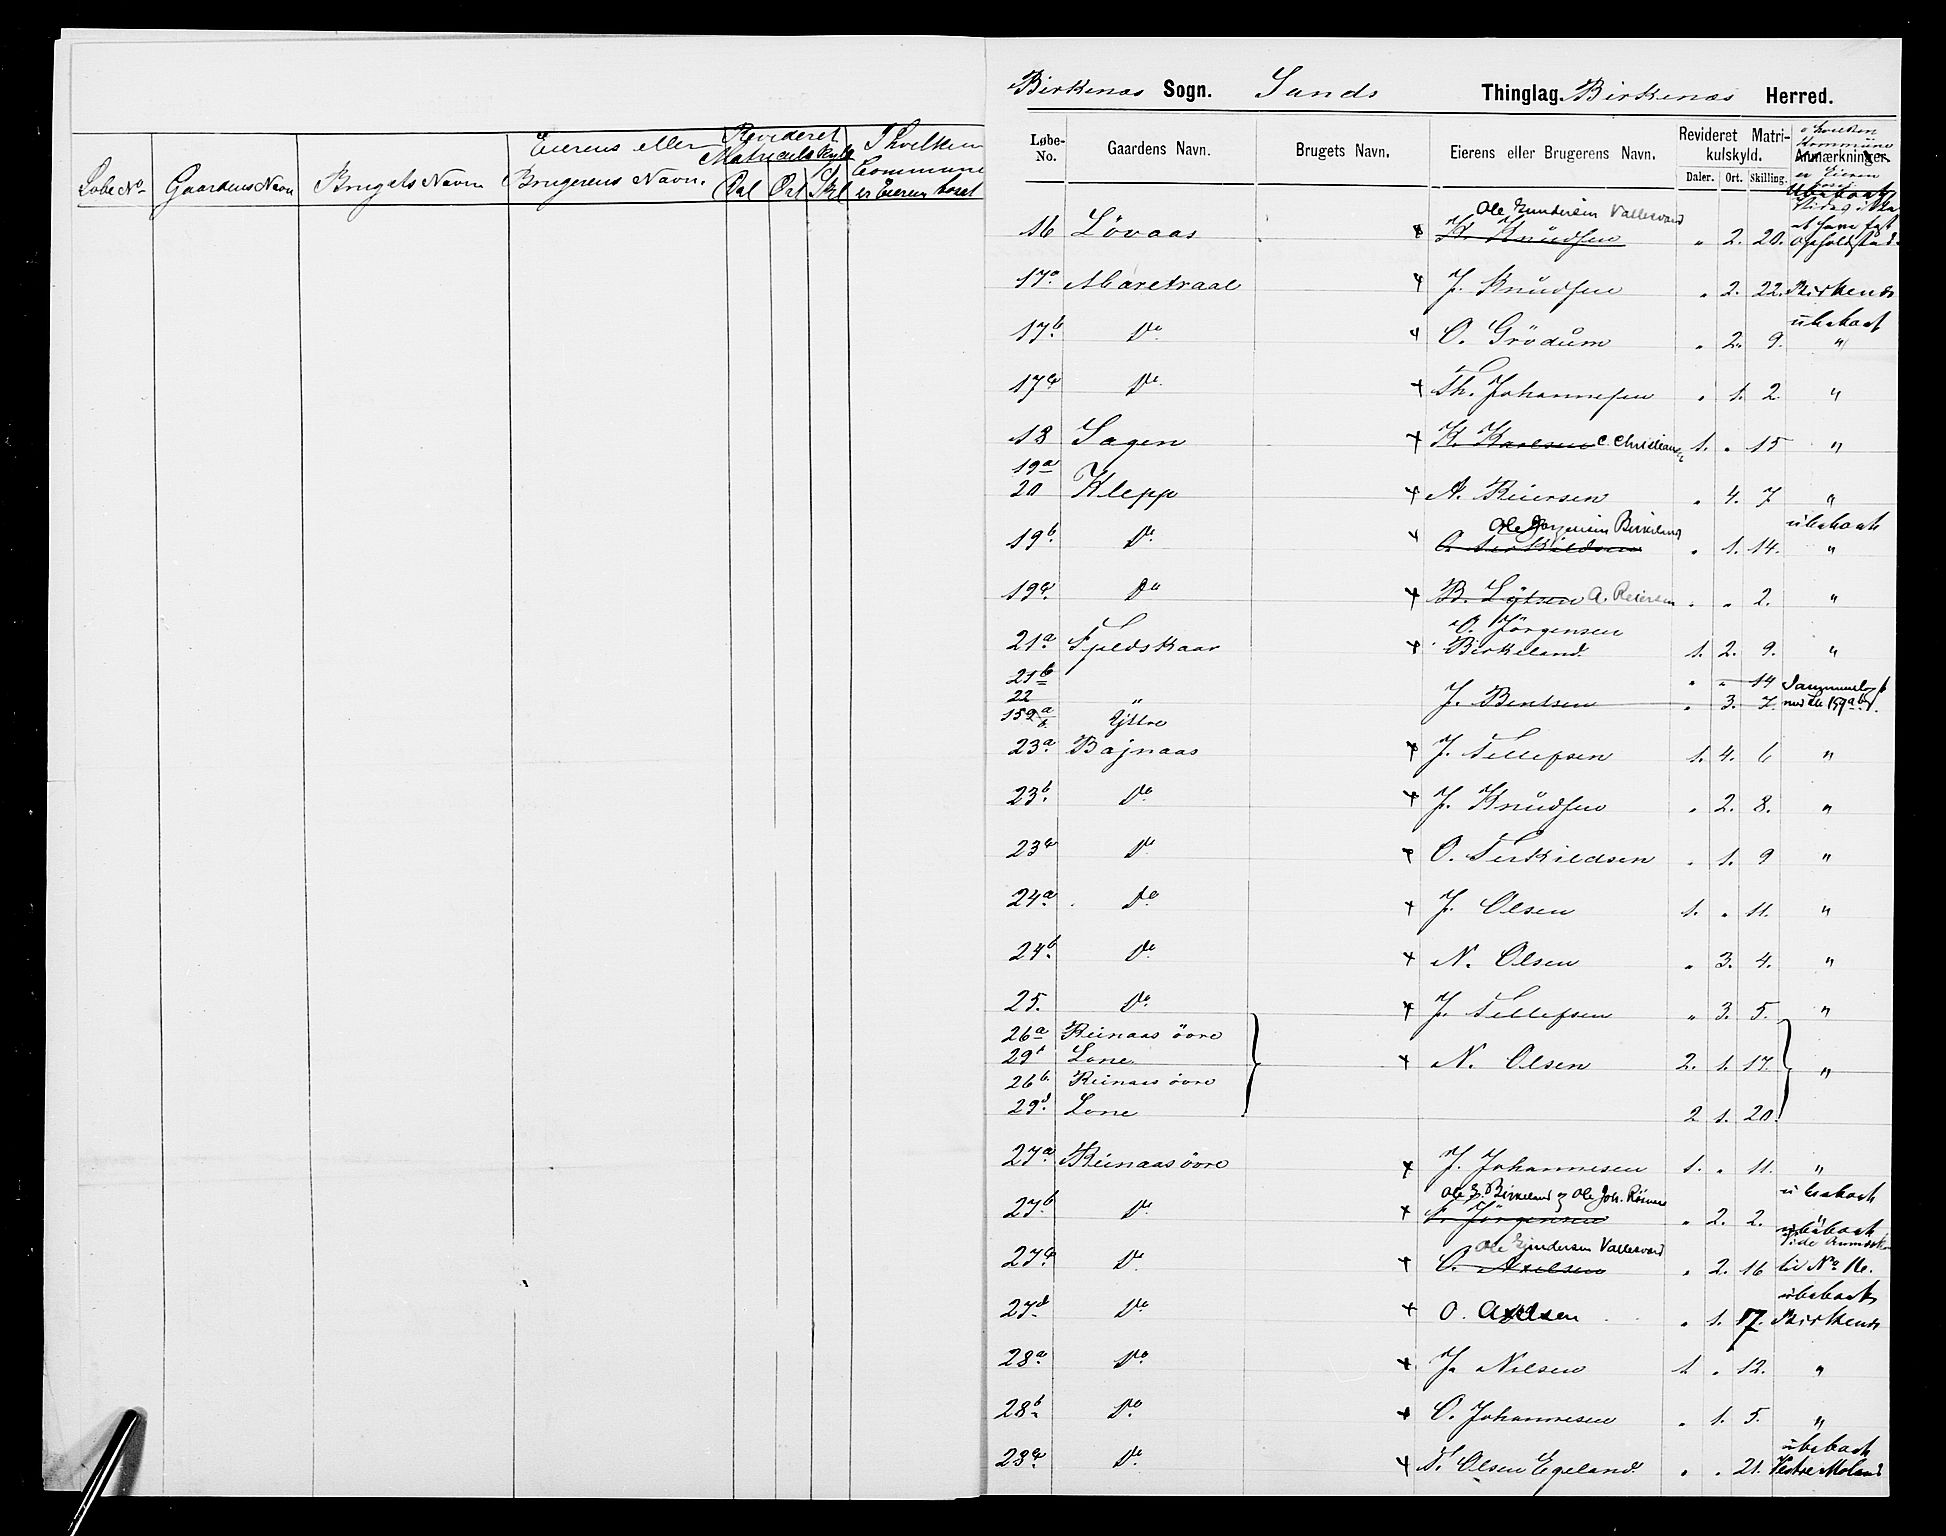 Løbe No
Gaardens Navn
Brugets Navn
Eierens eller
Brugerens Navn.
Revideret
Matriculskyld
Dal Ort Skl
I hvilken
Commune
er Eieren boset
Birkenæs Sogn. Sands Thinglag. Birkenæs Herred.
Løbe-No. Gaardens Navn. Brugets Navn. Eierens eller Brugerens Navn. Revideret Matrikulskyld. Daler. Ort. Skilling. Anmærkninger.
i hvilken Kommune er Eieren
Ole Gundersen Vallesverd
16 Lövaas × K. Knudsen " 2. 20.
17a Maretraal × J. Knudsen " 2. 22. Birkenæs
ubeboet
17b Do × O. Grödum " 2. 9. "
17c Do × Th. Johannesen " 1. 2. "
18 Sagen × K. Karlsen C. Christians 1. " 15 "
19a
20 Klepp × A. Reiersen " 4. 7 "
Ole Jörgensen Birkeland ubeboet
19b Do × O. Terkildsen " 1. 14. "
19c Do × B. A. Reiersen " " 2. "
O. Jörgensen
21a Fjeldskaar × Birkeland 1. 2. 9. "
21b " " 14
22 " J. Bentsen " 3. 7.
159a/b Yttre
23a Bøjnaas × J. Tellefsen 1. 4. 6 "
23b Do × J. Knudsen " 2. 8. "
23c Do × O. Terkildsen " 1. 9 "
24a Do × J. Olsen 1. " 11. "
24b Do × N. Olsen " 3. 4. "
25. Do × J. Tellefsen " 3. 5. "
26a Reinaas övre
29 Lone × N. Olsen 2. 1. 17. "
26b Reinaas övre
29d Lone 2 1. 20.
27a Reinaas övre × J. Johannesen 1. " 11. "
Ole J. Birkeland og Ole Joh. ubeboet
27b Do × Jörgensen " 2. 2. "
ubeboet
Ole Gundersen Vallesverd
27c Do × O. Axelsen " 2. 16 til No 16.
ubeboet
27d Do × O. Axelsen " 1. 17. Birkenæs
28a Do × J. Nilsen 1 " 12. "
28b Do × O. Johannesen " 1. 5. "
ubeboet
28c Do × T. Olsen Egeland " " 21. Vestre Moland